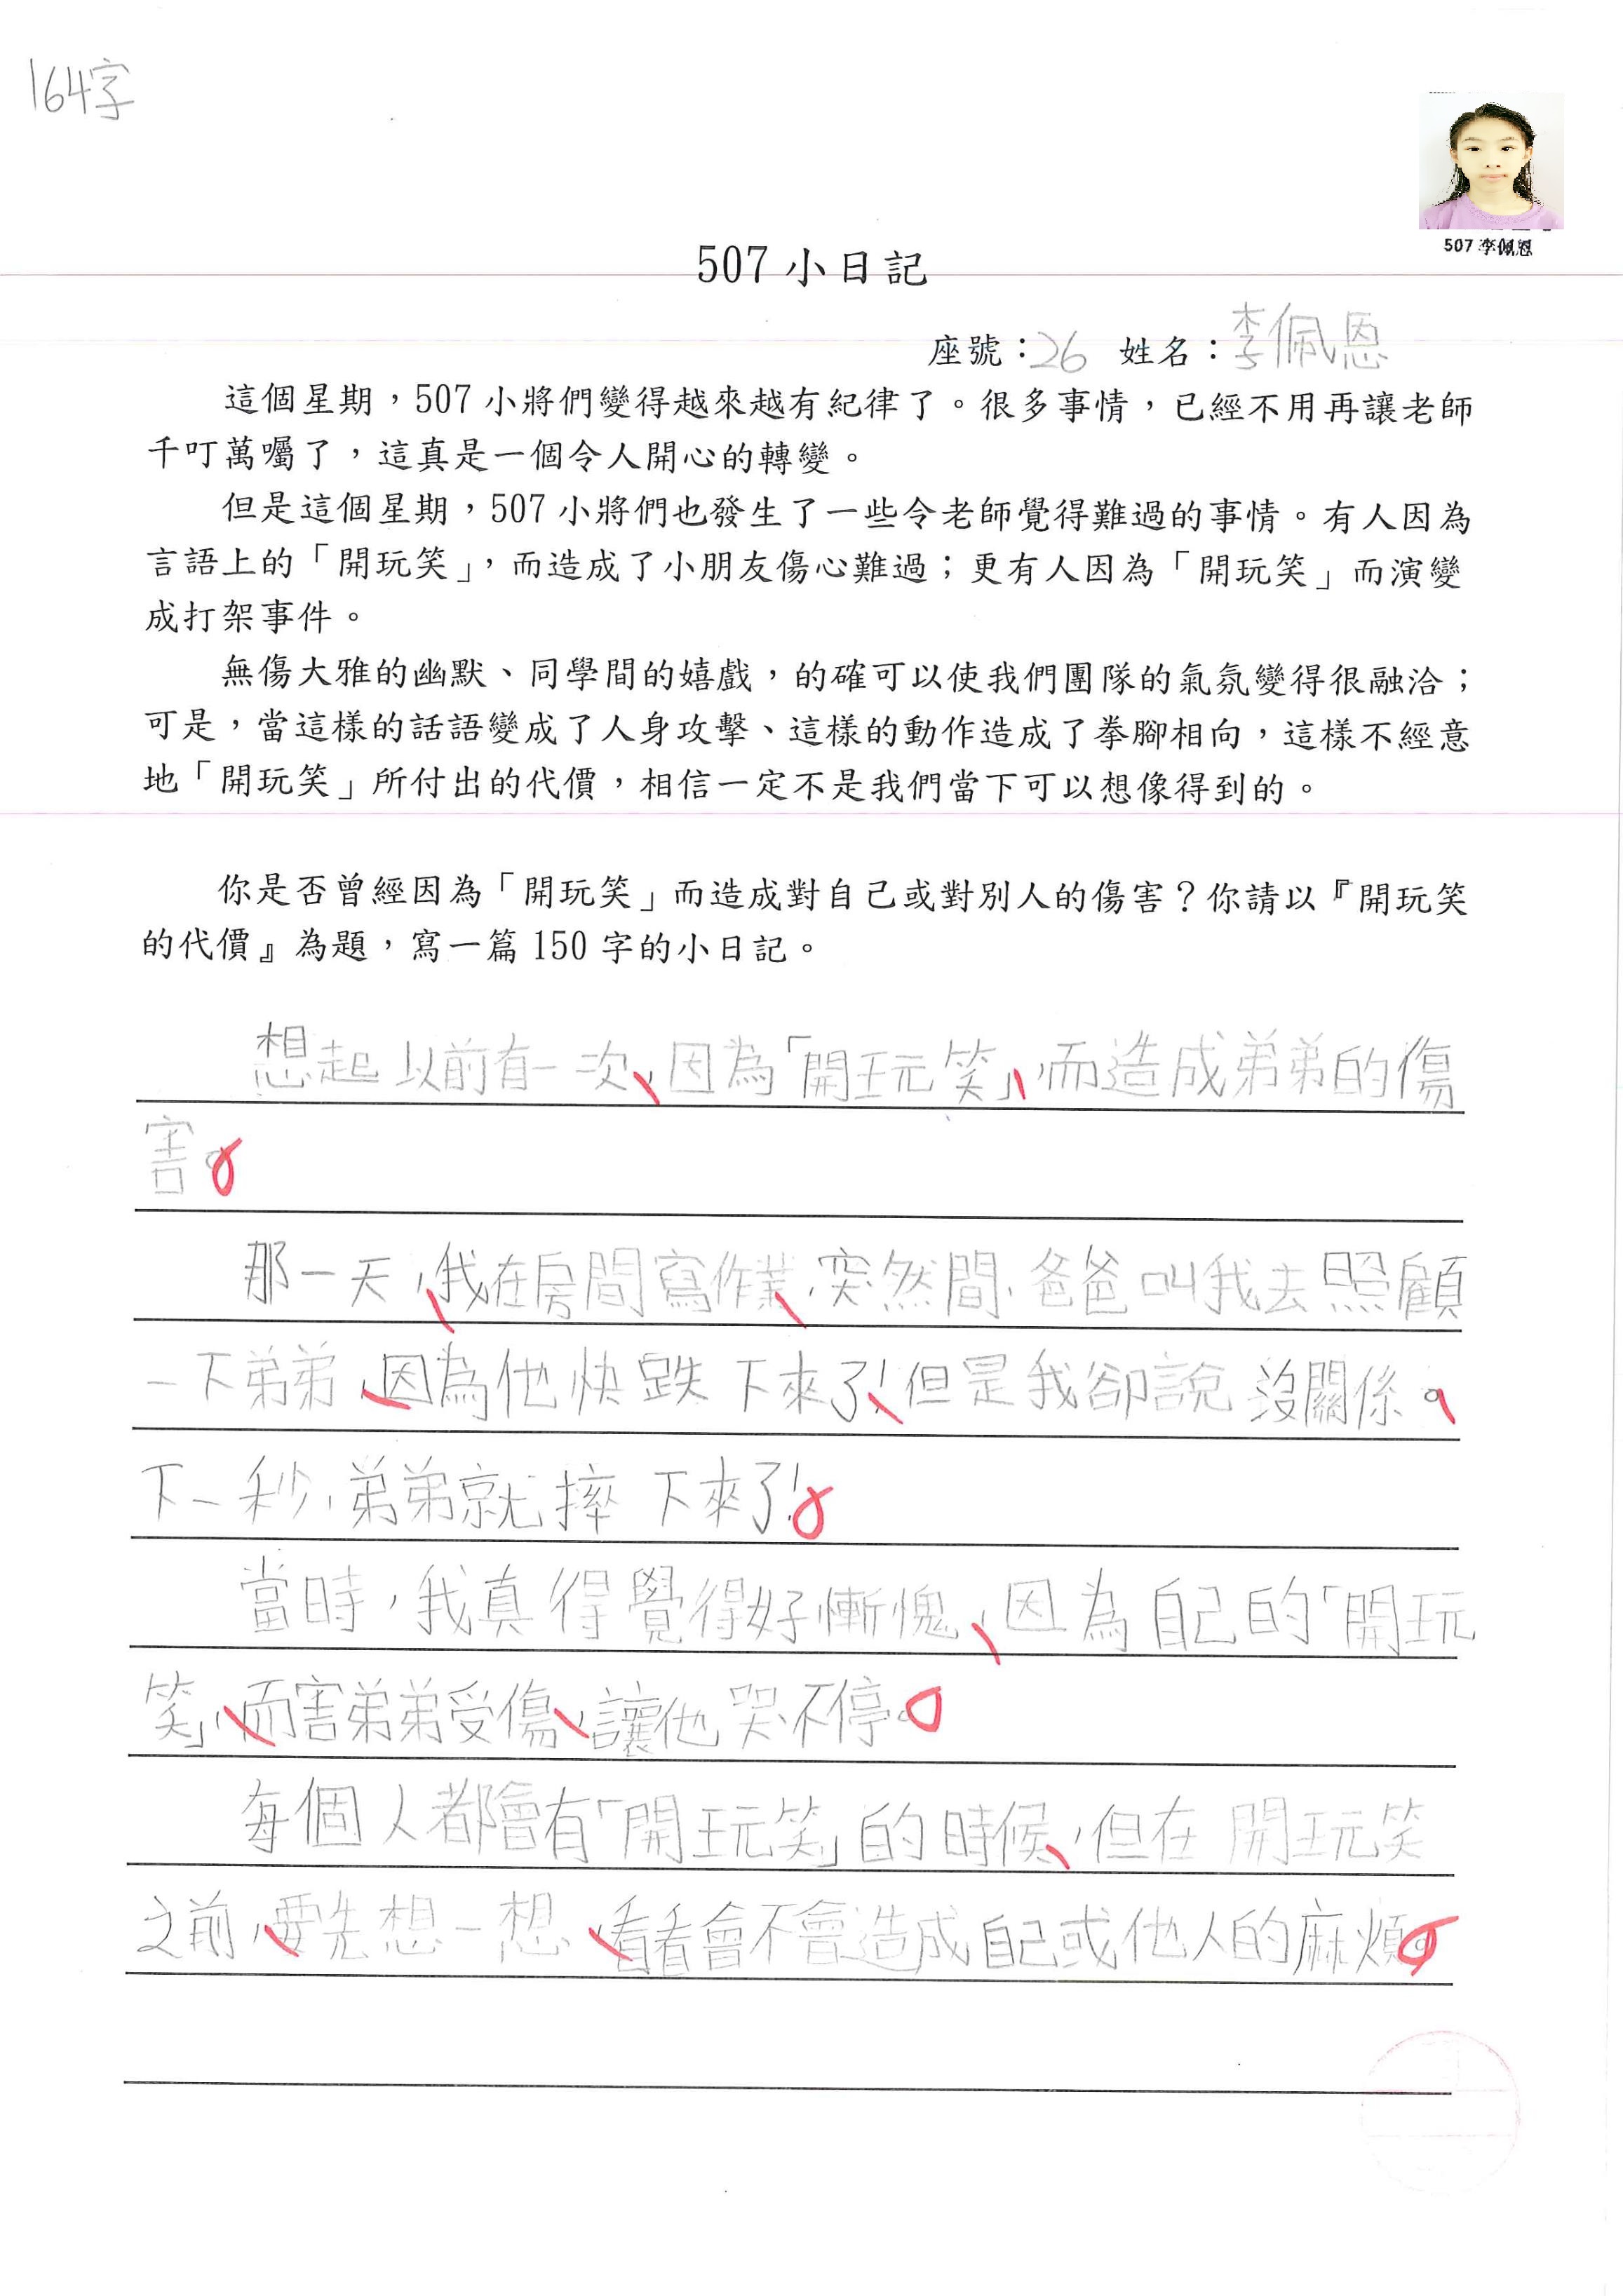 164字
507 李佩恩
507 小日記
座號：26 姓名：李佩恩
這個星期，507 小將們變得越來越有紀律了。很多事情，已經不用再讓老師
千叮萬囑了，這真是一個令人開心的轉變。
但是這個星期，507 小將們也發生了一些令老師覺得難過的事情。有人因為
言語上的「開玩笑」，而造成了小朋友傷心難過；更有人因為「開玩笑」而演變
成打架事件。
無傷大雅的幽默、同學間的嬉戲，的確可以使我們團隊的氣氛變得很融洽；
可是，當這樣的話語變成了人身攻擊、這樣的動作造成了拳腳相向，這樣不經意
地「開玩笑」所付出的代價，相信一定不是我們當下可以想像得到的。
你是否曾經因為「開玩笑」而造成對自己或對別人的傷害？你請以『開玩笑
的代價』為題，寫一篇 150 字的小日記。
想起以前有一次，因為「開玩笑」，而造成弟弟的傷
害。
那一天，我在房間寫作業，突然間，爸爸叫我去照顧
一下弟弟，因為他快跌下來了！但是我卻說沒關係。
下一秒，弟弟就摔下來了！
當時，我真得覺得好慚愧，因為自己的「開玩
笑」，而害弟弟受傷，讓他哭不停。
每個人都會有「開玩笑」的時候，但在開玩笑
之前，要先想一想，看看會不會造成自己或他人的麻煩。